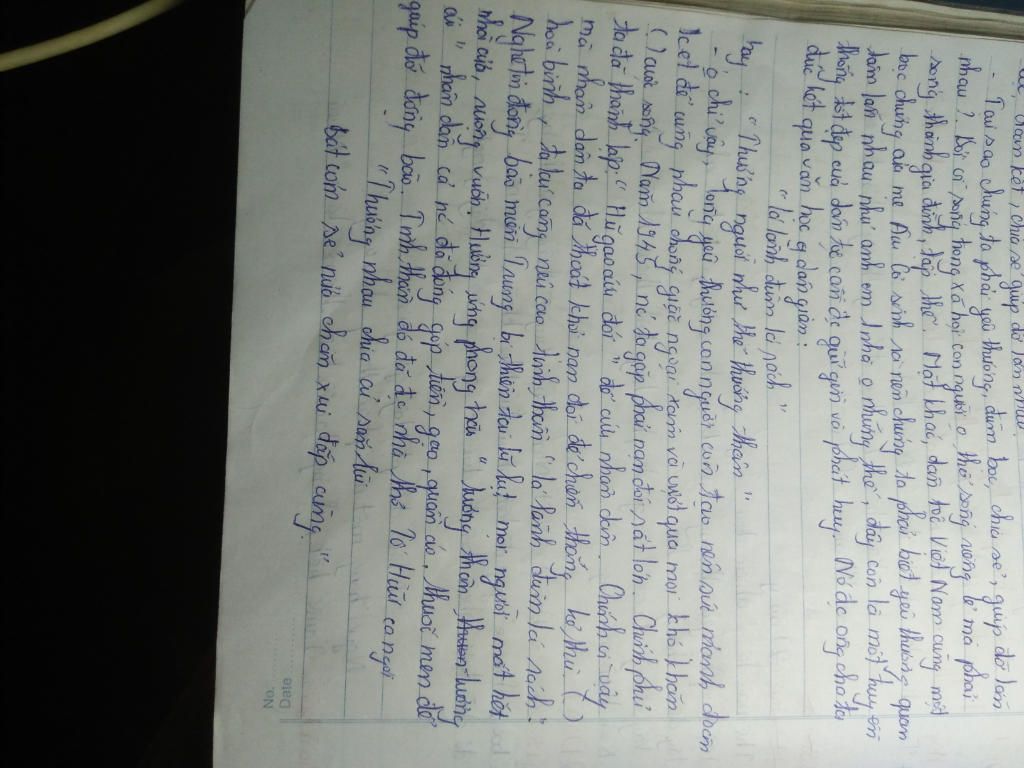 đoàn kết, chia sẻ giúp đỡ lẫn nhau
- Tại sao chúng ta phải yêu thương, đùm bọc, chia sẻ, giúp đỡ lẫn
nhau? Bởi vì sống trong xã hội con người o thể sống riêng lẻ mà phải
sống thành gia đình, tập thể. Một khác, dân tộc Việt Nam cùng một
bọc chung của mẹ Âu Cơ sinh ra nên chúng ta phải biết yêu thương quan
tâm lẫn nhau như anh em 1 nhà o những thế, đây còn là một truyền
thống tốt đẹp của dân tộc cần đc giữ gìn và phát huy. Nó đc ông cha ta
đúc kết qua văn học dân gian:
"Lá lành đùm lá rách"
hay: "Thương người như thể thương thân"
- o chỉ vậy, lòng yêu thương con người còn tạo nên sức mạnh đoàn
kết để cùng nhau chống giặc ngoại xâm và vượt qua mọi khó khăn
() cuộc sống. Năm 1945, nc ta gặp phải nạn đói rất lớn. Chính phủ
ta đã thành lập "Hũ gạo cứu đói" để cứu nhân dân. Chính vì vậy
mà nhân dân ta đã thoát khỏi nạn đói để chiến thắng kẻ thù. ()
hoà bình, ta lại càng nêu cao tinh thần "lá lành đùm lá rách".
Nghe tin đồng bào miền Trung bị thiên tai lũ lụt, mọi người mất hết
nhà cửa, ruộng vườn. Hưởng ứng phong trào "tương thân tương
ái" nhân dân cả nc đã đóng góp tiền, gạo, quần áo, thuốc men để
giúp đỡ đồng bào. Tinh thần đó đã đc nhà thơ Tố Hữu ca ngợi
"Thương nhau chia củ sắn lùi
Bát cơm sẻ nửa chăn xui đắp cùng."
No.
Date